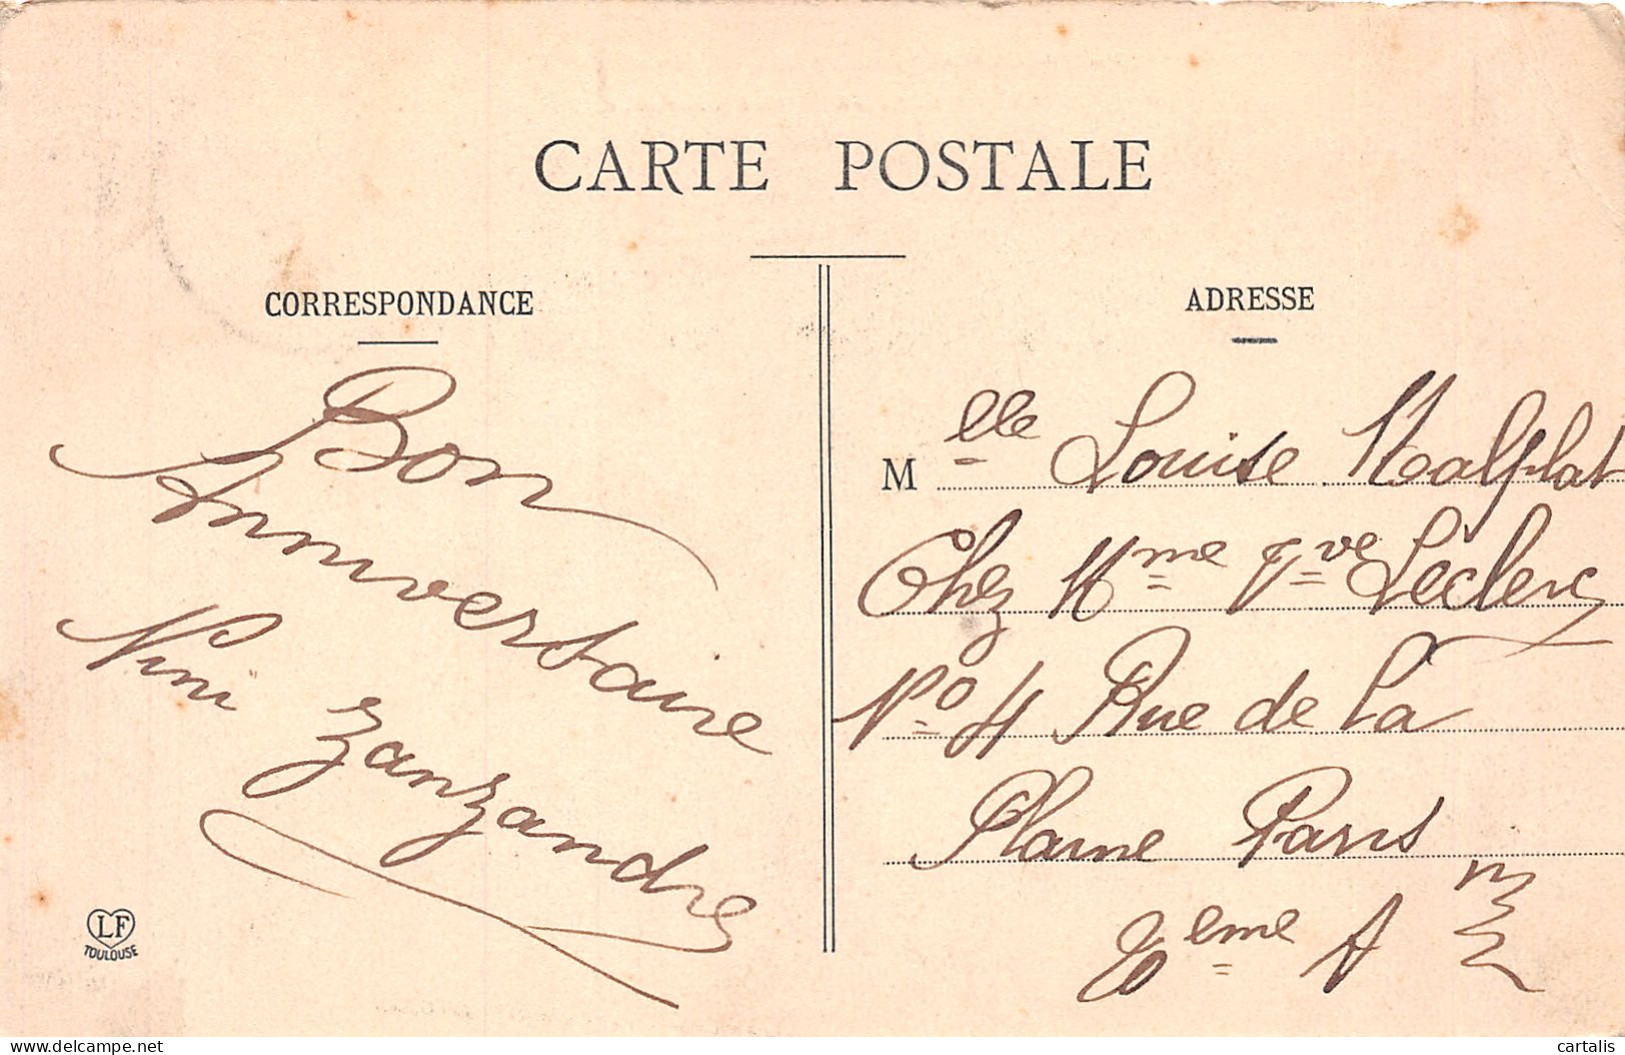 CARTE POSTALE
CORRESPONDANCE
Bon
Anniversaire
Nini Zanzandre
LF
TOULOUSE
ADRESSE
Mlle Louise Malplat
Chez Mme Vve Leclerc
No 4 Rue de la
Plaine Paris
20eme A
cartalis